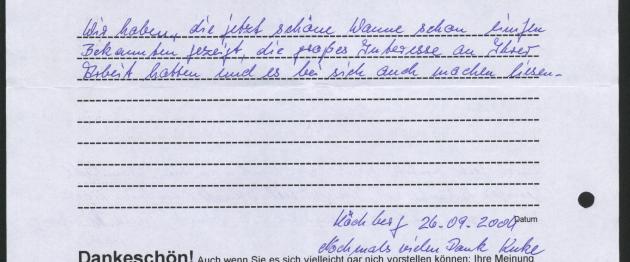 Wir haben, die jetzt schöne Wanne schon einigen
Bekannten gezeigt, die großes Interesse an Ihrer
Arbeit hatten und es bei sich auch machen liesen.
26.09.2004 Datum
Nochmals vielen Dank
Dankeschön! Auch wenn Sie es sich vielleicht gar nich vorstellen können: Ihre Meinung